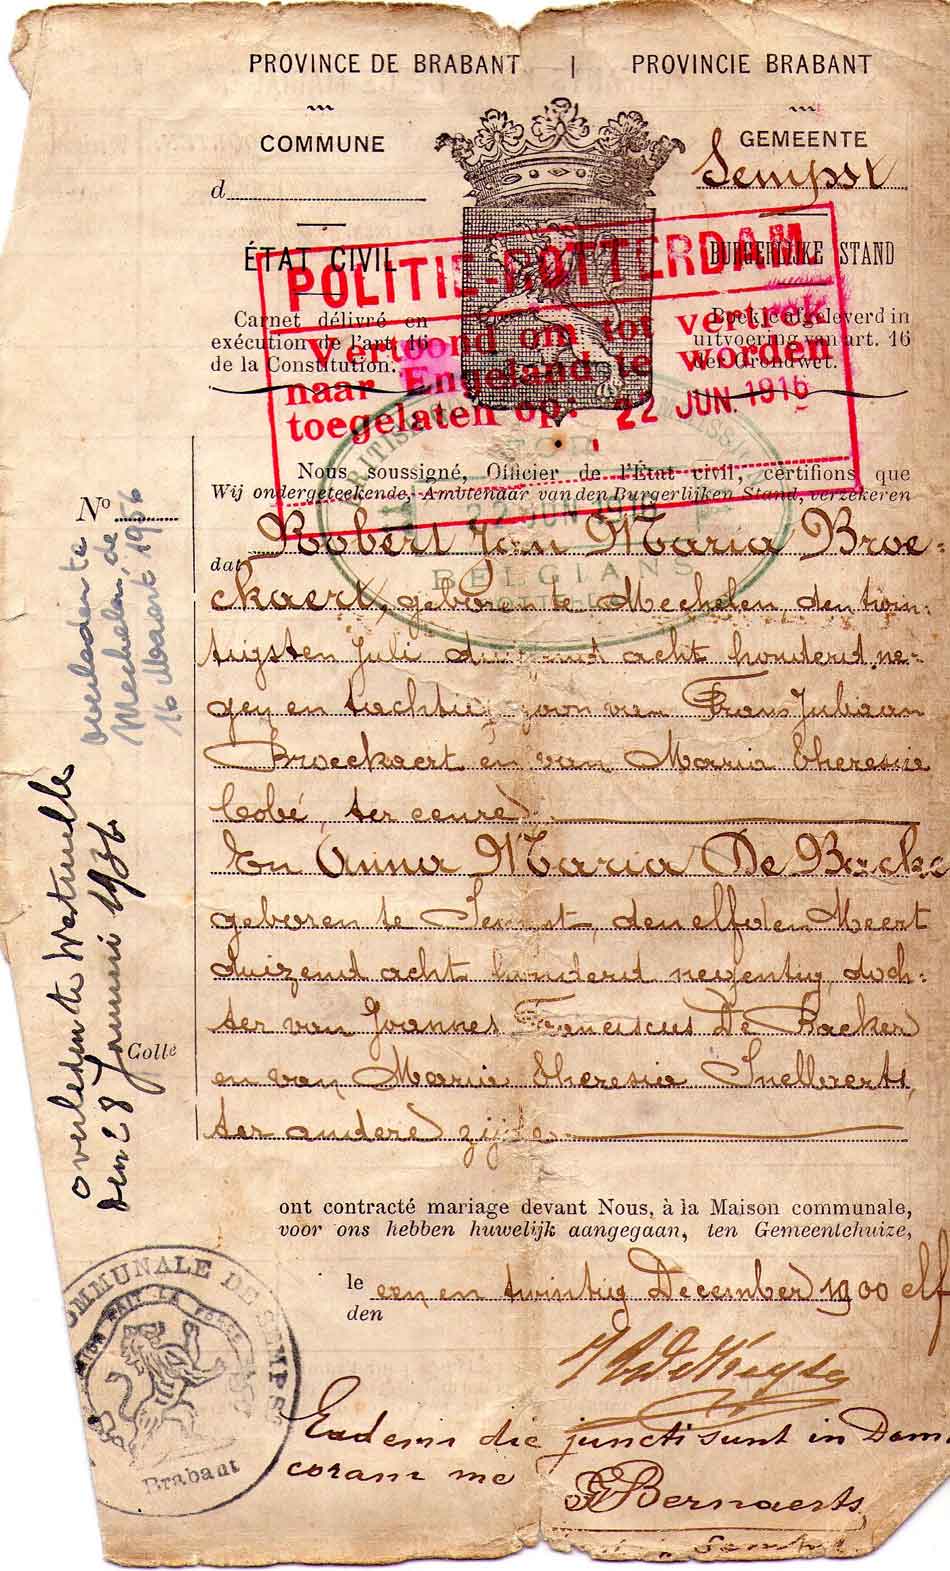 PROVINCE DE BRABANT | PROVINCIE BRABANT
COMMUNE
GEMEENTE
d
Sempst
ÉTAT CIVIL
BURGERLIJKE STAND
POLITIE-ROTTERDAM
Carnet délivré en
exécution de l'art. 16
de la Constitution.
Boekje afgeleverd in
uitvoering van art. 16
der Grondwet.
Vertoond om tot vertrek
naar Engeland te worden
toegelaten op: 22 JUN. 1916
Nous soussigné, Officier de l'État civil, certifions que
Wij ondergeteekende, Ambtenaar van den Burgerlijken Stand, verzekeren
22 JUN 1916
BELGIANS
dat Robert Jan Maria Broe-
ckaert, geboren te Mechelen den twin-
tigsten Juli duizend acht honderd ne-
gen en tachtig, zoon van Frans Juliaan
Broeckaert en van Maria Theresia
Cobé, ter eenre
En Anna Maria De Backer
geboren te Sempst, den elfden Meert
duizend acht honderd negentig, doch-
ter van Joannes Franciscus De Backer
en van Maria Theresia Snellaerts,
ter andere zijde
ont contracté mariage devant Nous, à la Maison communale,
voor ons hebben huwelijk aangegaan, ten Gemeentehuize,
le
den
een en twintig December 1900 elf
Eadem die juncti sunt in Dom.
coram me
Bernaerts
No
overleden te
Mechelen, de
16 Maart 1956
overleden te
den 28 Januari 1936
Colle
COMMUNALE DE SEMPS
UNION FAIT LA FORCE
Brabant